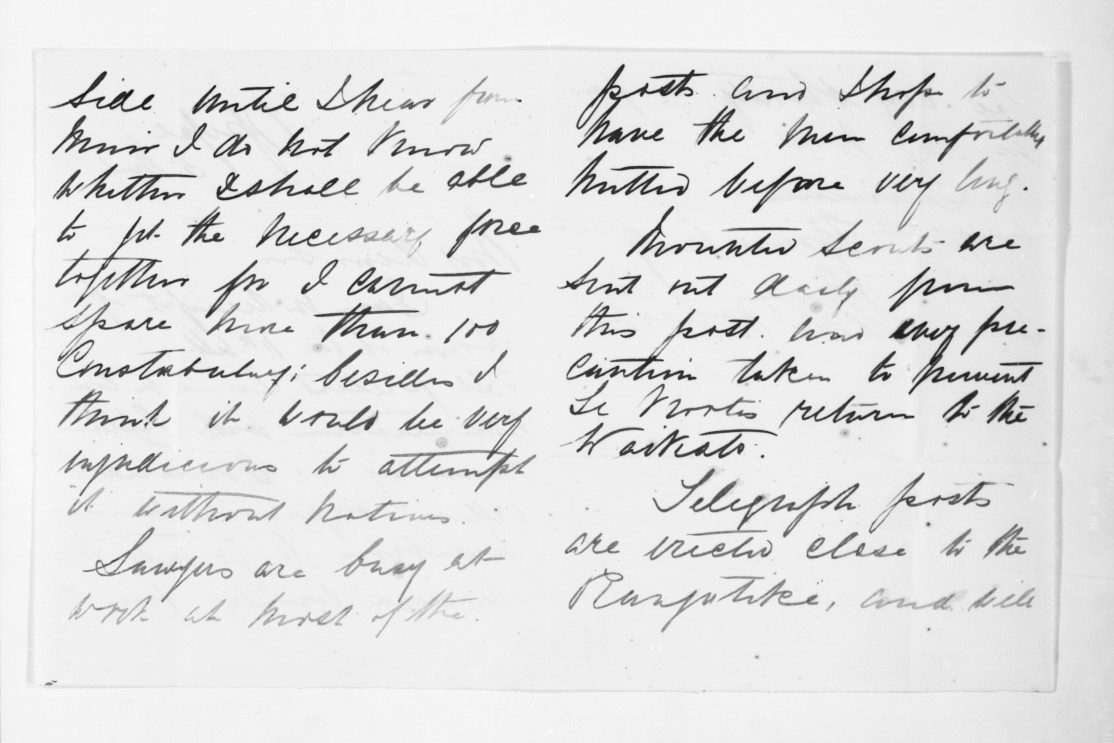 side until I hear from
Minir I do not know
whether I shall be able
to get the necessary force
together for I cannot
spare more than 100
Constabulary; besides I
think it would be very
injudicious to attempt
it without natives.
Sawyers are busy at
work at most of the
posts. and I hope to
have the men comfortably
hutted before very long.
Mounted Scouts are
sent out daily from
this post. and every pre-
caution taken to prevent
Te Kooti's return to the
Waikato.
Telegraph posts
are erected close to the
Rangatike, and will